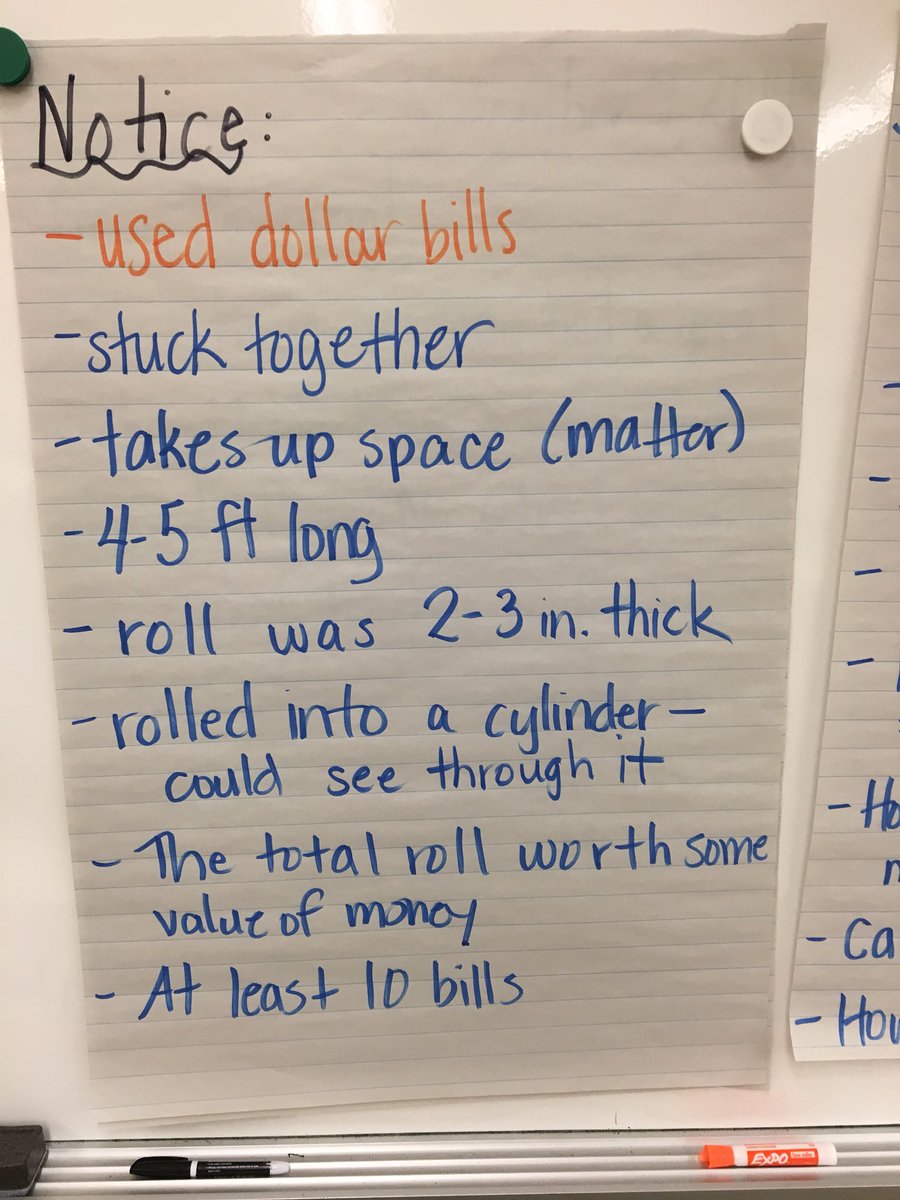 Notice:
- used dollar bills
- stuck together
- takes up space (matter)
- 4-5 ft long
- roll was 2-3 in. thick
- rolled into a cylinder -
could see through it
- The total roll worth some
value of money
- At least 10 bills
- Ca
- How
EXPO